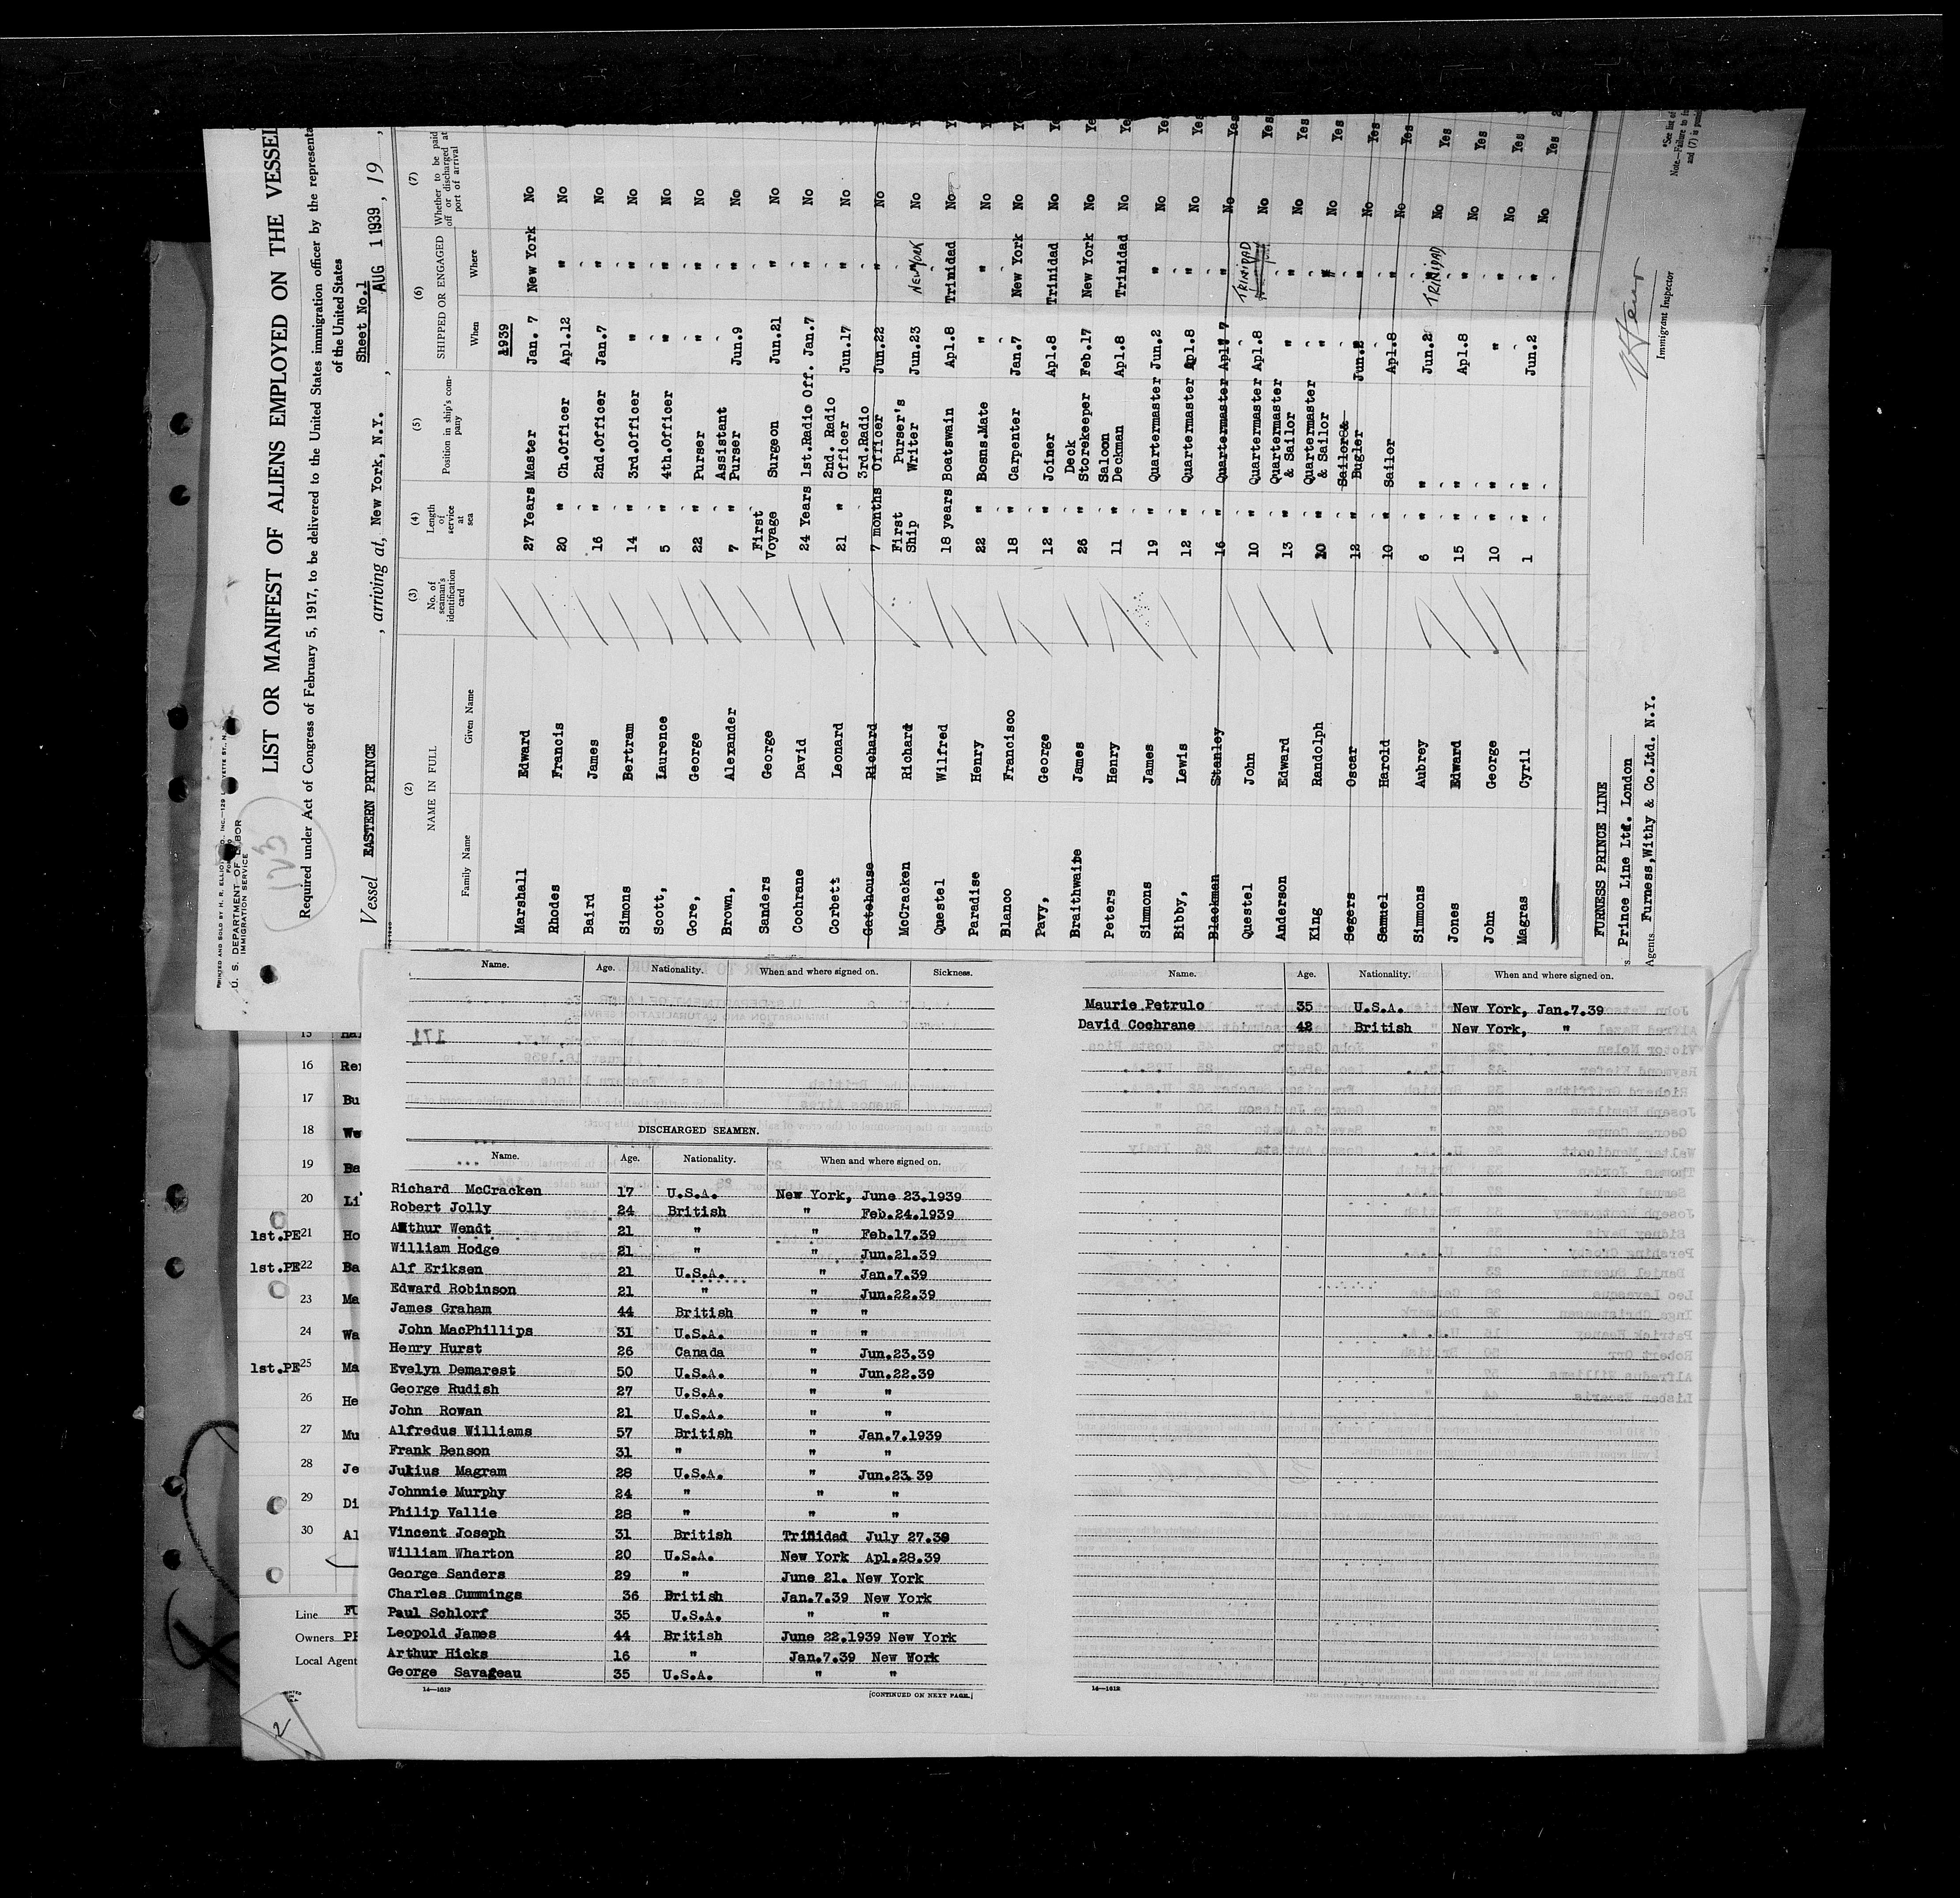 PRINTED AND SOLD BY H. R. ELLIOT
U. S. DEPARTMENT OF LABOR
IMMIGRATION SERVICE
123
LIST OR MANIFEST OF ALIENS EMPLOYED ON THE VESSEL
Required under Act of Congress of February 5, 1917, to be delivered to the United States immigration officer by the representa
of the United States
Sheet No.1
Vessel EASTERN PRINCE, arriving at, New York, N.Y., AUG 1 1939, 19
(2) (3) (4) (5) (6) (7)
NAME IN FULL No. of seaman's identification card Length of service at sea Position in ship's company SHIPPED OR ENGAGED Whether to be paid off or discharged at port of arrival
Family Name Given Name When Where
1939
Marshall Edward 27 Years Master Jan. 7 New York No
Rhodes Francis 20 " Ch.Officer Apl.12 " No
Baird James 16 " 2nd.Officer Jan.7 " No
Simons Bertram 14 " 3rd.Officer " " No
Scott, Laurence 5 " 4th.Officer " " No
Gore, George 22 " Purser " " No
Brown, Alexander 7 " Assistant Purser Jun.9 " No
Sanders George First Voyage Surgeon Jun.21 " No
Cochrane David 24 Years 1st.Radio Off. Jan.7 " No
Corbett Leonard 21 " 2nd. Radio Officer Jun.17 " No
Gatehouse Richard 7 months 3rd.Radio Officer Jun.22 " No
McCracken Richard First Ship Purser's Writer Jun.23 New York No
Questel Wilfred 18 years Boatswain Apl.8 Trinidad No
Paradise Henry 22 " Bosns.Mate " " No
Blanco Francisco 18 " Carpenter Jan.7 New York No
Pavy, George 12 " Joiner Apl.8 Trinidad No
Braithwaite James 26 " Deck Storekeeper Feb.17 New York No
Peters Henry 11 " Saloon Deckman Apl.8 Trinidad No
Simmons James 19 " Quartermaster Jun.2 " No Yes
Bibby, Lewis 12 " Quartermaster Apl.8 " No Yes
Blackman Stanley 16 " Quartermaster Apl.7 " No Yes
Questel John 10 " Quartermaster Apl.8 TRINIDAD No Yes
Anderson Edward 13 " Quartermaster & Sailor " " No Yes
King Randolph 10 " Quartermaster & Sailor " " No Yes
Segers Oscar 12 " Sailor & Bugler Jun.2 " No Yes
Samuel Harold 10 " Sailor Apl.8 " No Yes
Simmons Aubrey 6 " " Jun.2 TRINIDAD No Yes
Jones Edward 15 " " Apl.8 " No Yes
John George 10 " " " " No Yes
Magras Cyril 1 " " Jun.2 " No Yes
FURNESS PRINCE LINE
Prince Line Ltd. London
Agents Furness,Withy & Co.Ltd. N.Y.
Immigrant Inspector
*See list of
Note.—Failure to fu
and (7) is punis
16 Re
17 Bu
18 We
19 Ba
20 Li
1st.PE 21 Ho
1st.PE 22 Ba
23 Ma
24 Wa
1st.PE 25 Ma
26 He
27 Mu
28 Je
29 Di
30 Al
Line FU
Owners PR
Local Agent
2
Name. Age. Nationality. When and where signed on. Sickness.
DISCHARGED SEAMEN.
Name. Age. Nationality. When and where signed on.
Richard McCracken 17 U.S.A. New York, June 23.1939
Robert Jolly 24 British " Feb.24.1939
Arthur Wendt 21 " " Feb.17.39
William Hodge 21 " " Jun.21.39
Alf Eriksen 21 U.S.A. " Jan.7.39
Edward Robinson 21 " " Jun.22.39
James Graham 44 British " "
John MacPhillips 31 U.S.A. " "
Henry Hurst 26 Canada " Jun.23.39
Evelyn Demarest 50 U.S.A. " Jun.22.39
George Rudish 27 U.S.A. " "
John Rowan 21 U.S.A. " "
Alfredus Williams 57 British " Jan.7.1939
Frank Benson 31 " " "
Julius Magram 28 U.S.A. " Jun.23.39
Johnnie Murphy 24 " " "
Philip Vallie 28 " " "
Vincent Joseph 31 British Trinidad July 27.39
William Wharton 20 U.S.A. New York Apl.28.39
George Sanders 29 " June 21. New York
Charles Cummings 36 British Jan.7.39 New York
Paul Schlorf 35 U.S.A. " "
Leopold James 44 British June 22.1939 New York
Arthur Hicks 16 " Jan.7.39 New Work
George Savageau 35 U.S.A. " "
14—1612 [CONTINUED ON NEXT PAGE.]
Name. Age. Nationality. When and where signed on.
Maurie Petrulo 35 U.S.A. New York, Jan.7.39
David Cochrane 42 British New York, "
14—1612